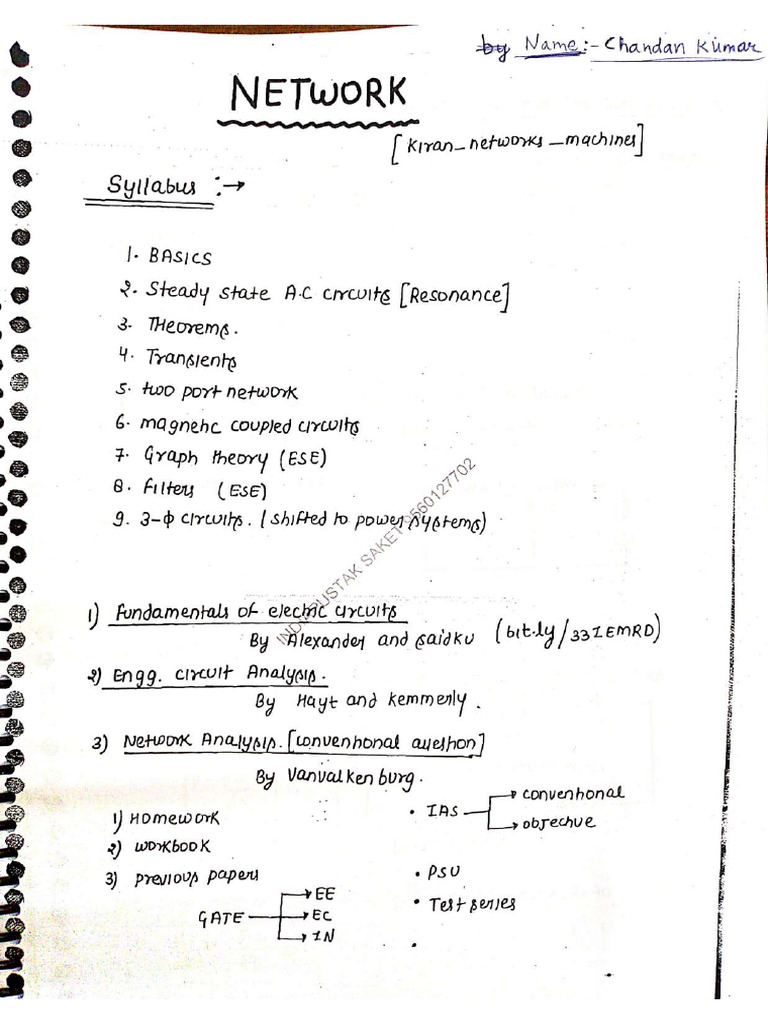 by Name:- Chandan Kumar
NETWORK
[Kiran_networks_machines]
Syllabus :→
1. BASICS
2. Steady state A.C circuits [Resonance]
3. Theorems.
4. Transients
5. two port network
6. magnetic coupled circuits
7. Graph theory (ESE)
8. Filters (ESE)
9. 3-ϕ circuits. (shifted to power systems)
PUSTAK SAKET 9560127702
1) Fundamentals of electric circuits
By Alexander and saidku (bit.ly/33IEMRD)
2) Engg. circuit Analysis.
By Hayt and Kemmerly.
3) Network Analysis. [conventional question]
By Vanvalkenburg.
1) Homework
2) workbook
3) previous papers
GATE → EE
→ EC
→ IN
• IAS → conventional
→ objective
• PSU
• Test series
•